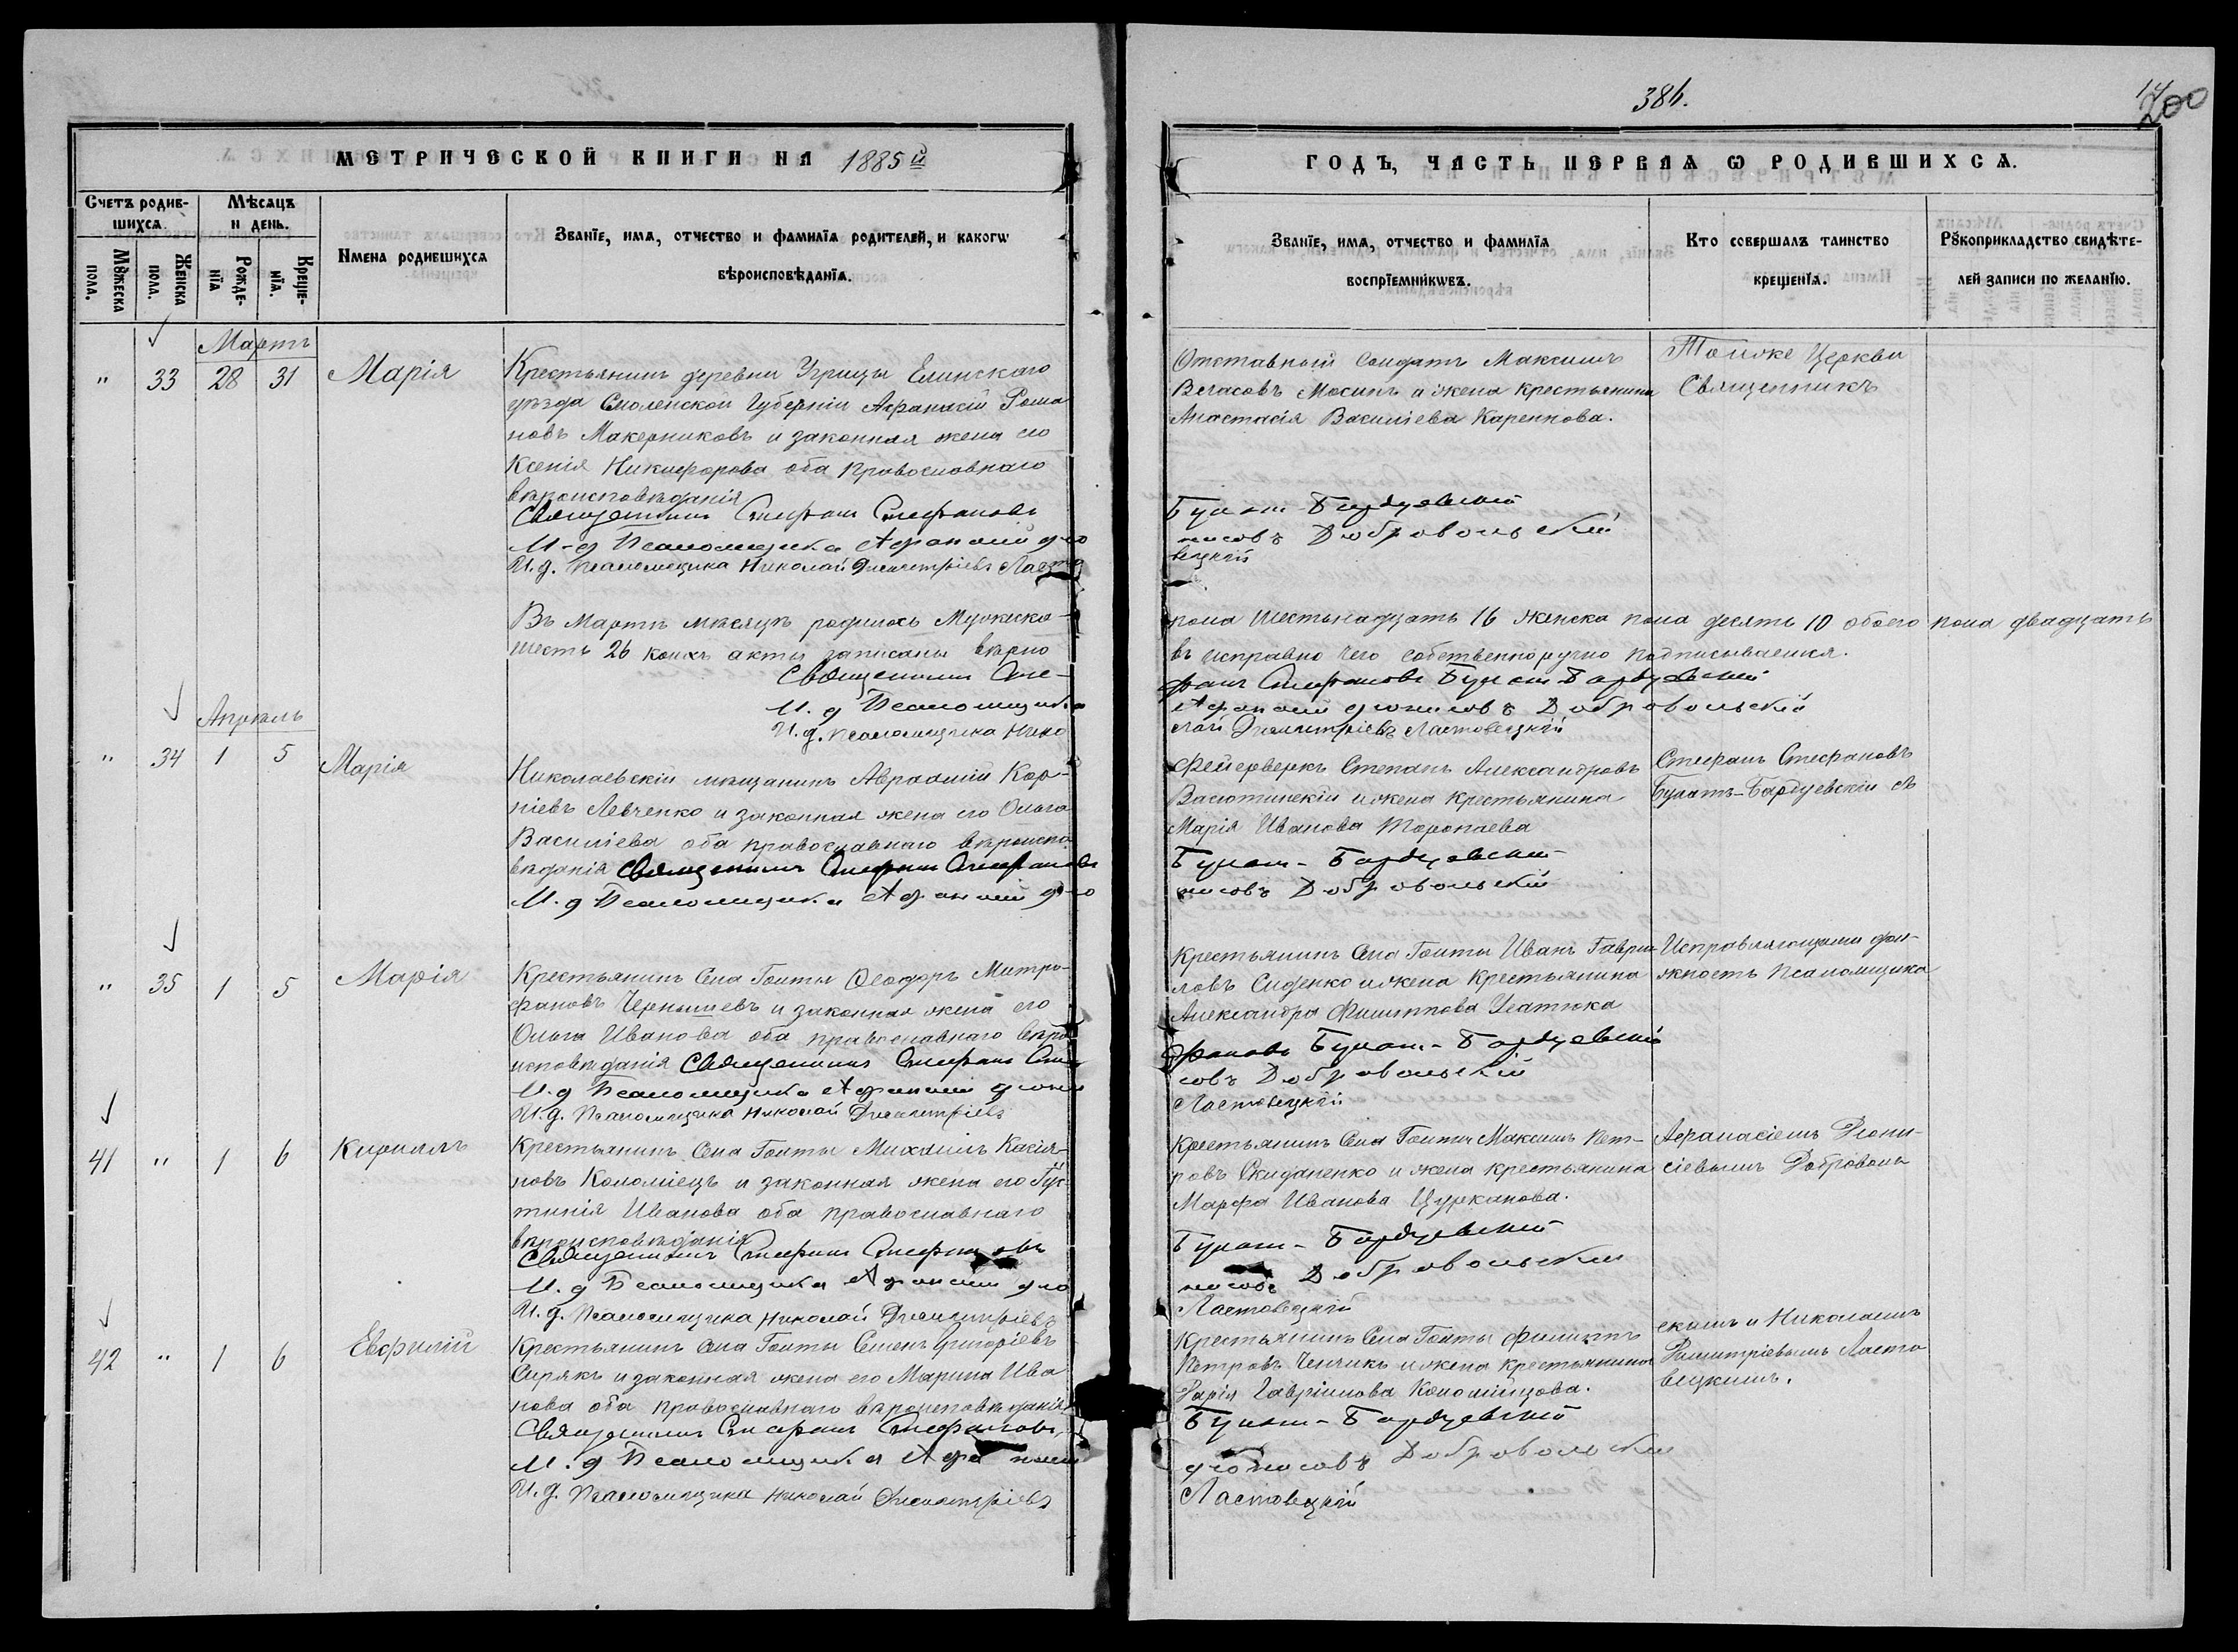 386.
200
МЕТРИЧЕСКОЙ КНИГИ НА 1885й
ГОДЪ, ЧАСТЬ ПЕРВАЯ Ѡ РОДИВШИХСѦ.
Счетъ родив-
шихсѧ.
Мѣсѧцъ
и день.
Мꙋжеска
пола.
Женска
пола.
Рожде-
нїѧ
Креще-
нїѧ.
Имена родившихсѧ
Званїе, имѧ, отчество и фамилїѧ родителей, и какогѡ
вѣроисповѣданїѧ.
Званїе, имѧ, отчество и фамилїѧ
воспрїемникѡвъ.
Кто совершалъ таинство
крещенїѧ.
Рꙋкоприкладство свидѣте-
лей записи по желанїю.
Мартъ
" 33 28 31 Марія
Крестьянинъ деревни Угрицы Елинского
уѣзда Смоленской Губерніи Афанасій Рома
новъ Макерниковъ и законная жена его
Ксенія Никифорова оба православнаго
вѣроисповѣданія
Священникъ Стефанъ Стефановъ
И-д Псаломщика Афанасій діо
И.д. Псаломщика Николай Димитріевъ Ласто
Отставной Солдатъ Максимъ
Мосинъ и жена крестьянина
Анастасія Василіева Каренкова.
Булат-Бардуевскій
нисовъ Добровольскій
вецкій
Тойже Церкви
Священникъ
Въ Мартѣ мѣсяцѣ родилось Мужеска-
шесть 26 коихъ акты записаны вѣрно
Священникъ Сте-
И.д Псаломщика
И.д. Псаломщика Нико
пола Шестьнадцать 16 женска пола десять 10 обоего пола двадцать
въ исправно чего собственноручно подписываемся.
фанъ Стефановъ Булат-Бардуевскій
Афанасій діонисовъ Добровольскій
лай Димитріевъ Ластовецкій
Апрѣль
" 34 1 5 Марія
Николаевскій мѣщанинъ Авраамій Кор-
ніевъ Левченко и законная жена его Ольга
Василіева оба православнаго вѣроиспо
вѣданія Священникъ Стефанъ Стефановъ
И.д Псаломщика Афанасій діо
Фейерверкъ Степанъ Александровъ
Васютинскій и жена крестьянина
Марія Иванова Торопаева
Булат-Бардуевскій
нисовъ Добровольскій
Стефанъ Стефановъ
Булатъ-Бардуевскій съ
" 35 1 5 Марія
Крестьянинъ Села Гоиты Ѳеодоръ Митро-
фановъ Чернышевъ и законная жена его
Ольга Иванова оба православнаго вѣро
исповѣданія Священникъ Стефанъ Сте
И.д Псаломщика Афанасій діони
И.д. Псаломщика Николай Димитріевъ
Крестьянинъ Села Гоиты Иванъ Гаври-
ловъ Сиденко и жена Крестьянина
Александра Филиппова
фановъ Булат-Бардуевскій
совъ Добровольскій
Ластовецкій
Исправляющими дол-
жность Псаломщика
41 " 1 6 Кириллъ
Крестьянинъ Села Гоиты Михаилъ Касія-
новъ Коломіецъ и законная жена его Гус-
тинія Иванова оба православнаго
вѣроисповѣданія
Священникъ Стефанъ Стефановъ
И.д Псаломщика Афанасій діо
И.д. Псаломщика Николай Димитріевъ
Крестьянинъ Села Гоиты Максимъ Пет-
ровъ Скиданенко и жена крестьянина
Марфа Иванова Цурканова.
Булат-Бардуевскій
нисовъ Добровольскій
Ластовецкій
Афанасіемъ Діони-
сіевымъ Доброволь
42 " 1 6 Евфилій
Крестьянинъ Села Гоиты Семенъ Григоріевъ
Сирякъ и законная жена его Марина Ива
нова оба православнаго вѣроисповѣданія
Священникъ Стефанъ Стефановъ
И.д Псаломщика Афанасій
И.д. Псаломщика Николай Димитріевъ
Крестьянинъ Села Гоиты Филиппъ
Петровъ Ченчикъ и жена крестьянина
Дарія Гавріилова Коломійцова.
Булат-Бардуевскій
діонисовъ Добровольскій
Ластовецкій
скимъ и Николаемъ
Димитріевымъ Ласто
вецкимъ.